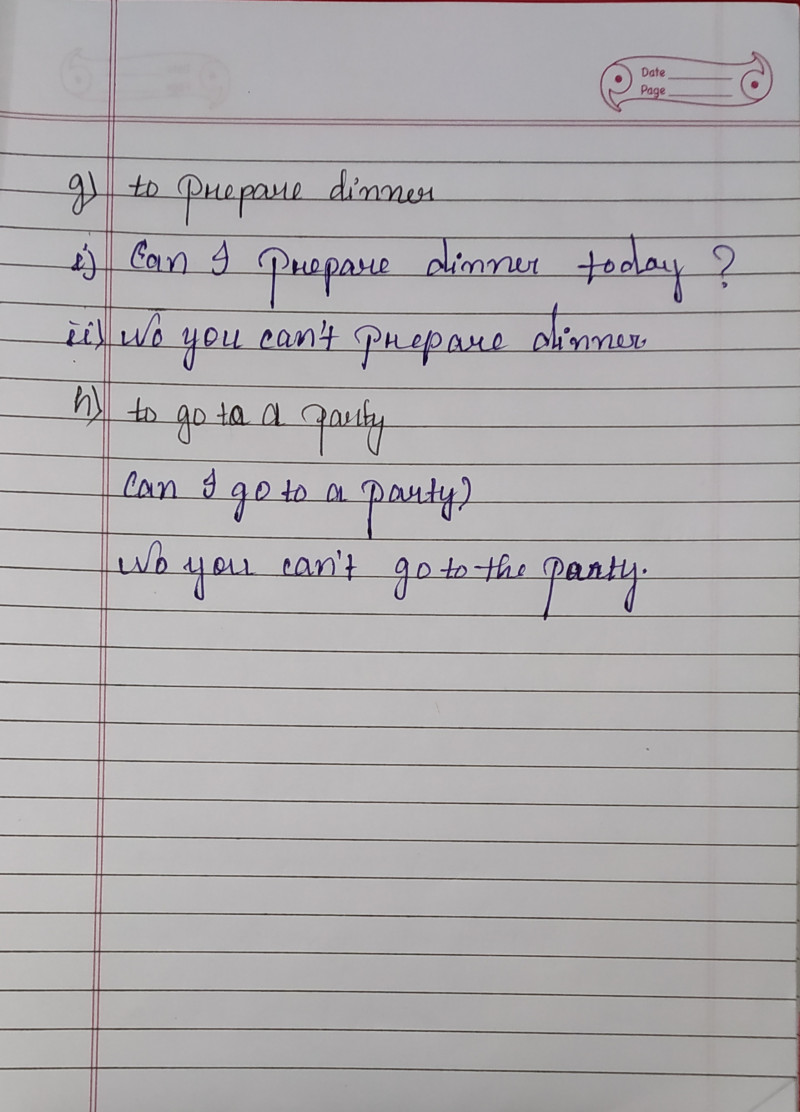 Date
Page
g) to prepare dinner
i) Can I prepare dinner today ?
ii) No you can't prepare dinner.
h) to go to a party
Can I go to a party?
No you can't go to the party.